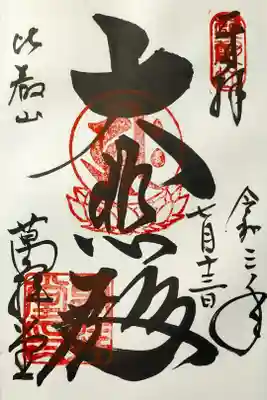 奉拝
令和三年
七月十三日
大悲殿
比叡山
萬拝堂